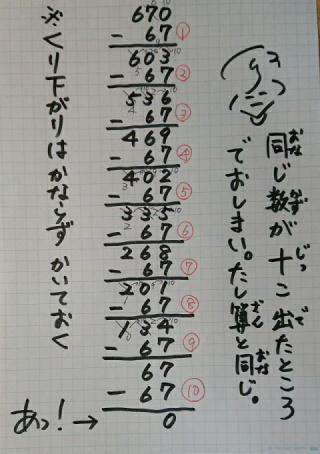 同じ数が十こ出たところ
おな
かず
じっ
で
でおしまい。たし算と同じ。
ざん
おな
670
- 67 ①
603
- 67 ②
536
- 67 ③
469
- 67 ④
402
- 67 ⑤
335
- 67 ⑥
268
- 67 ⑦
201
- 67 ⑧
134
- 67 ⑨
67
- 67 ⑩
0
※くり下がりはかならず かいておく
あっ!→